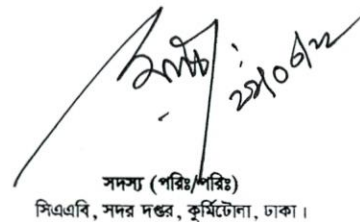 সদস্য (পরিঃ/পরিঃ)
সিএএবি, সদর দপ্তর, কুর্মিটোলা, ঢাকা।